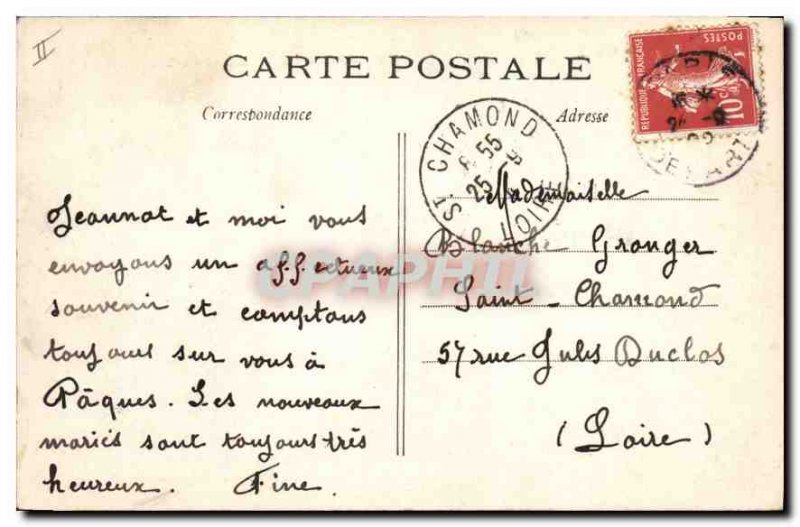 II
CARTE POSTALE
Correspondance
Adresse
POSTES
REPUBLIQUE FRANÇAISE
10c
ST CHAMOND
8 55
25
LOIRE
PARIS
DEPART
Jeannot et moi vous
envoyons un affectueux
souvenir et comptons
toujours sur vous à
Pâques. Les nouveaux
mariés sont toujours très
heureux. Fine.
Mademoiselle
Blanche Granger
Saint-Chamond
57 rue Jules Duclos
(Loire)